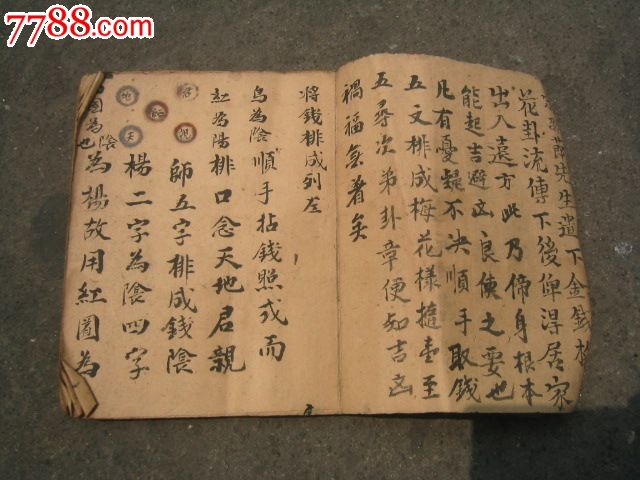 7788.com
先生遺下金錢
花卦流傳下後俾淂居家
出入遠方此乃俻身根本
能起吉避凶良便之要也
凡有憂疑不决順手取錢
五文排成梅花樣
至
五尋次弟卦章便知吉凶
禍福
着矣
將錢排成列左
烏為陰順手拈錢照式而
紅為陽排口念天地君親
師五字排成錢陰
楊二字為陰四字
為楊故用紅圖為
圖為陰也
君
親
師
地
天